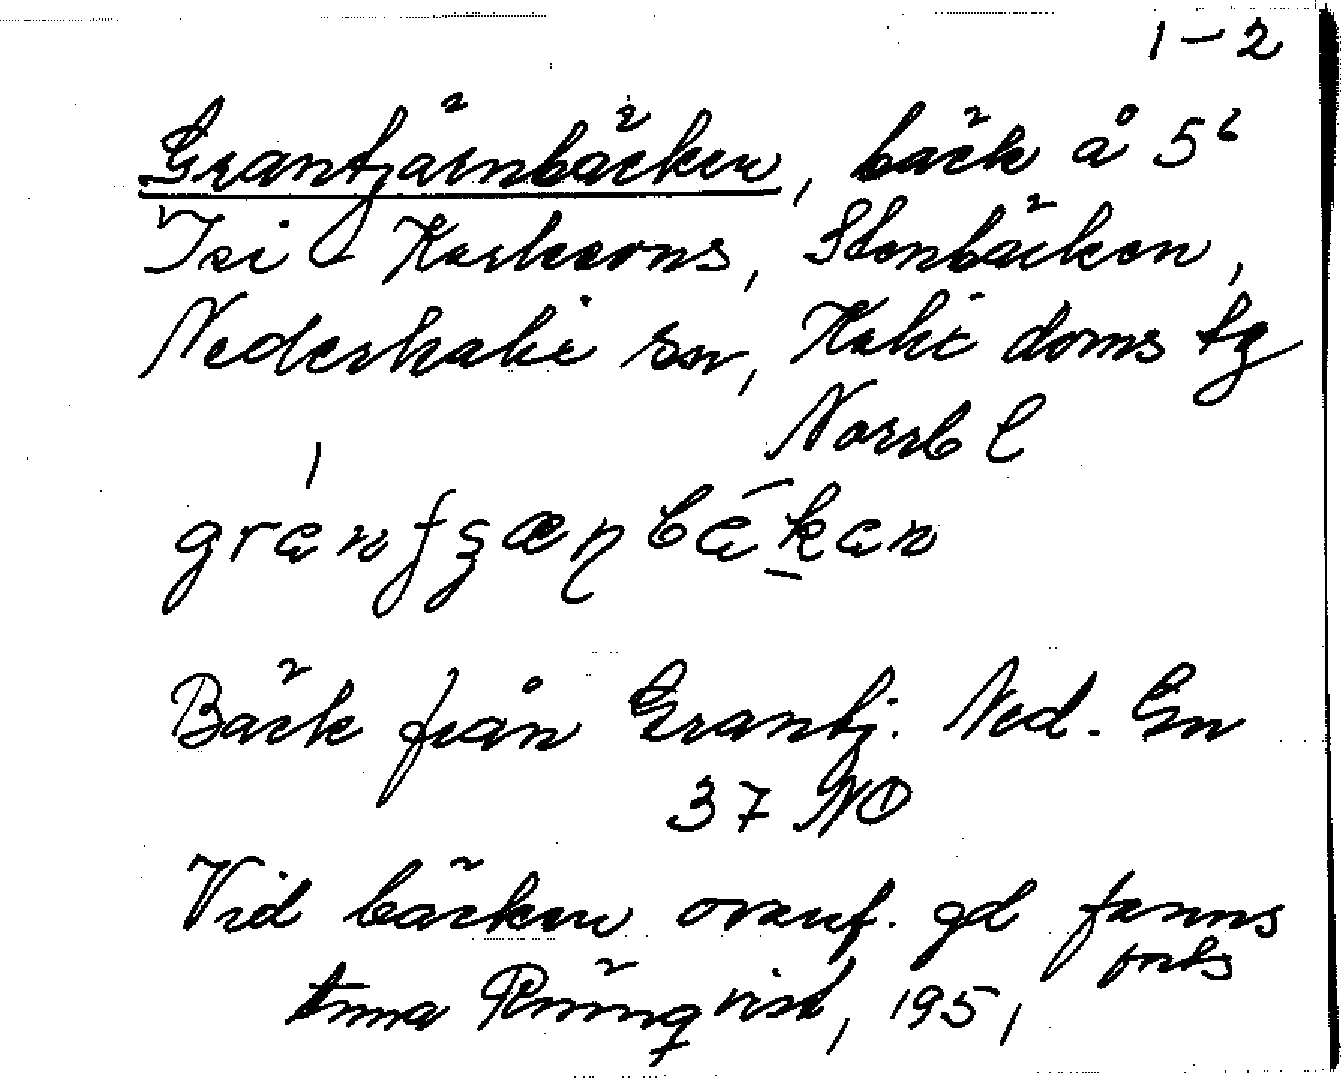 1–2
Grantjärnbäcken, bäck å 5⁶
Isi Karlssons, Stenbäcken,
Nederkalix sn, Kalix doms tg
Norrb l
Bäck från Grantj. Ned. Gn
37 NO
Vid bäcken ovanf. gd fanns
forts
Anna Rönnqvist, 1951